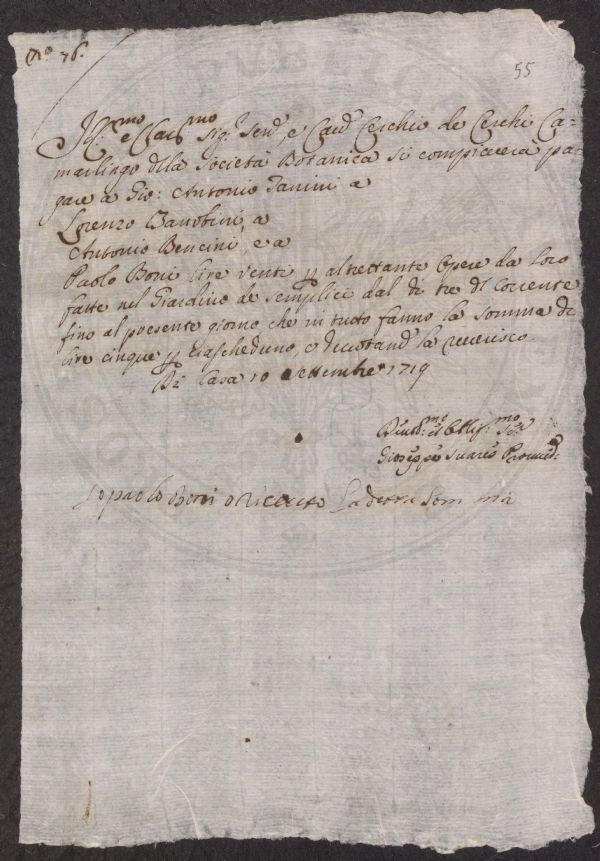 No. 76.
55
Ill.mo e Clar.mo Sig.r Sen.re, e Cav.re Cerchio de Cerchi Ca=
marlingo della Società Botanica si compiacerà pa
gare a Gio: Antonio Tanini a
Lorenzo Banobini, a
Antonio Bencini, e a
Paolo Boni lire venti p altrettante Opere da loro
fatte nel Giardino de semplici dal di tre del Corrente
fino al presente giorno che in tutto fanno la somma di
lire cinque p ciascheduno, e devotam.te la riverisco.
Di Casa 10 Settembre 1719
Devot.mo et Obblig.mo Ser.re
Gioseppe Suares Provved.re
Io paolo Boni o riceuto La detta Som ma